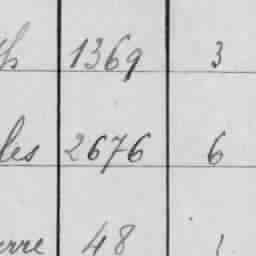 th 1369 3
les 2676 6
erre 48 1